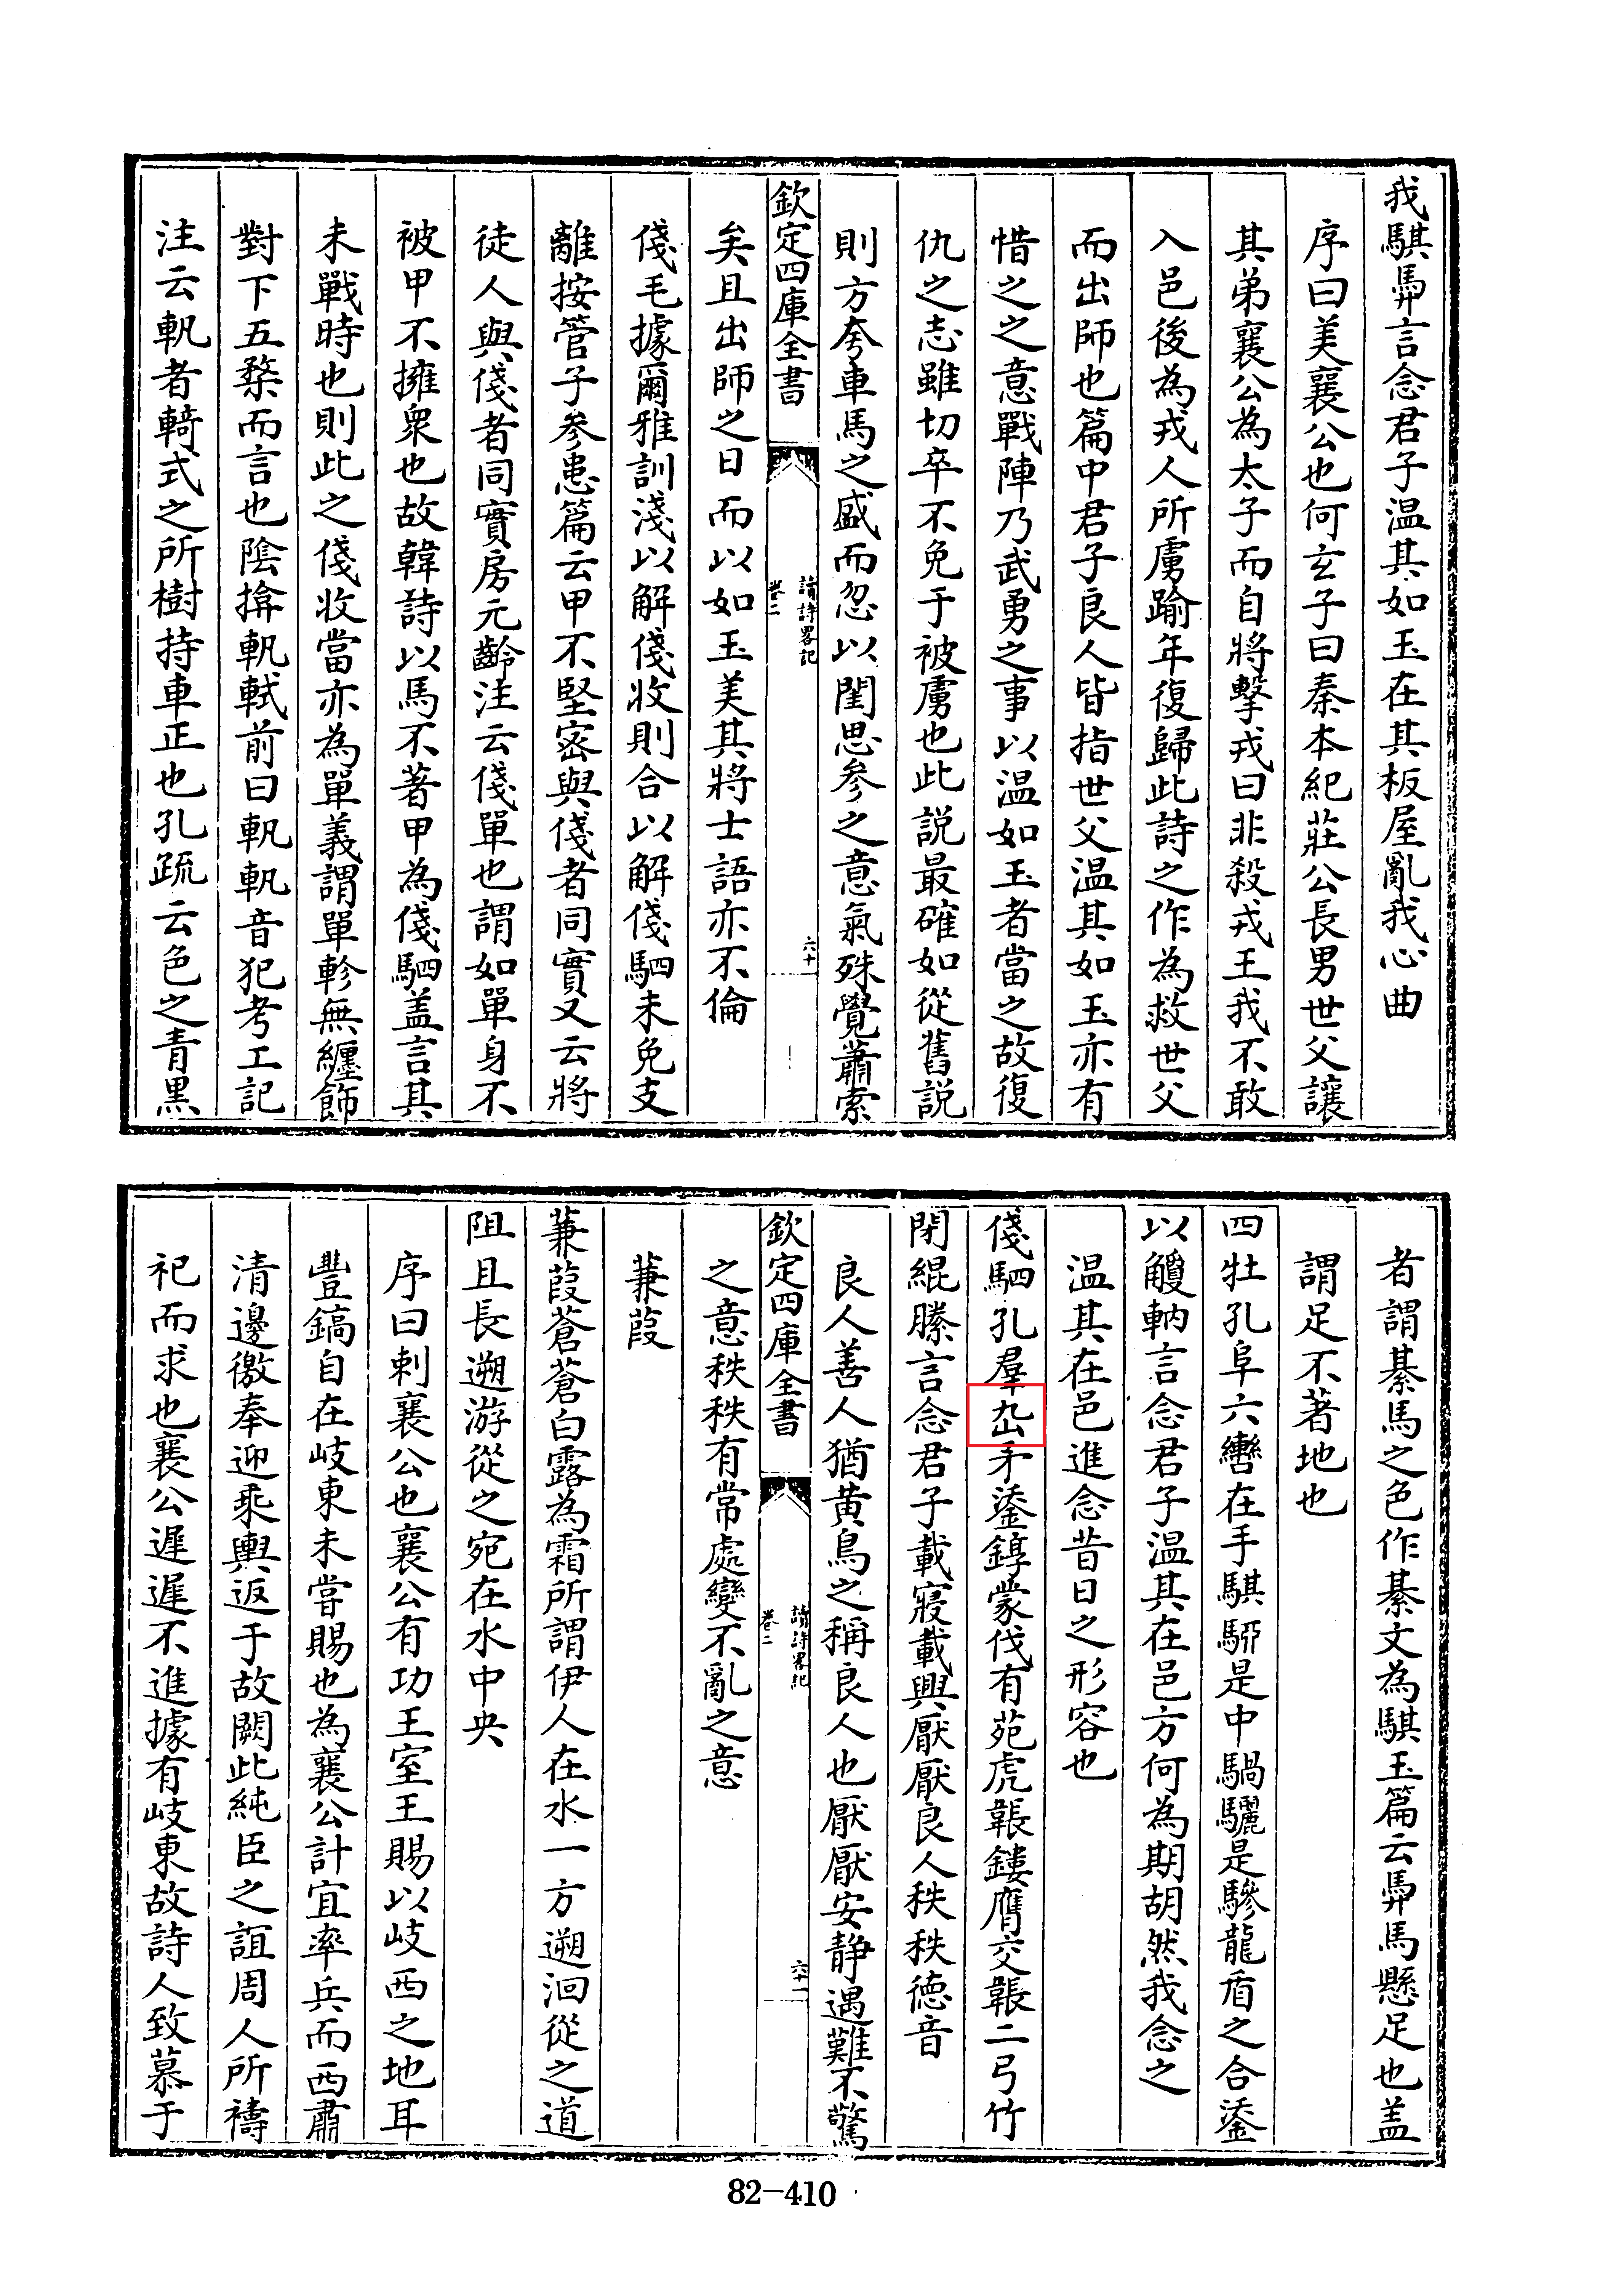 我騏馵言念君子温其如玉在其板屋亂我心曲
序曰美襄公也何玄子曰秦本紀莊公長男世父讓
其弟襄公為太子而自將擊戎曰非殺戎王我不敢
入邑後為戎人所虜踰年復歸此詩之作為救世父
而出師也篇中君子良人皆指世父温其如玉亦有
惜之之意戰陣乃武勇之事以温如玉者當之故復
仇之志雖切卒不免于被虜也此説最確如從舊説
則方夸車馬之盛而忽以閨思参之意氣殊覺蕭索
欽定四庫全書
讀詩畧記
卷二
六十
矣且出師之日而以如玉美其將士語亦不倫
俴毛據爾雅訓淺以解俴收則合以解俴駟未免支
離按管子参患篇云甲不堅密與俴者同實又云將
徒人與俴者同實房元齡注云俴單也謂如單身不
被甲不擁衆也故韓詩以馬不著甲為俴駟盖言其
未戰時也則此之俴收當亦為單義謂單軫無纒飾
對下五楘而言也陰揜軓軾前曰軓軓音犯考工記
注云軓者輢式之所樹持車正也孔疏云色之青黒
者謂綦馬之色作綦文為騏玉篇云馵馬懸足也盖
謂足不著地也
四牡孔阜六轡在手騏駵是中騧驪是驂龍盾之合鋈
以觼軜言念君子温其在邑方何為期胡然我念之
温其在邑進念昔日之形容也
俴駟孔羣厹矛鋈錞蒙伐有苑虎韔鏤膺交韔二弓竹
閉緄縢言念君子載寢載興厭厭良人秩秩徳音
良人善人猶黄鳥之稱良人也厭厭安静遇難不驚
欽定四庫全書
讀詩畧記
卷二
六十一
之意秩秩有常處變不亂之意
蒹葭
蒹葭蒼蒼白露為霜所謂伊人在水一方遡洄從之道
阻且長遡游從之宛在水中央
序曰刺襄公也襄公有功王室王賜以岐西之地耳
豐鎬自在岐東未嘗賜也為襄公計宜率兵而西肅
清邊徼奉迎乘輿返于故闕此純臣之誼周人所禱
祀而求也襄公遲遲不進據有岐東故詩人致慕于
82-410